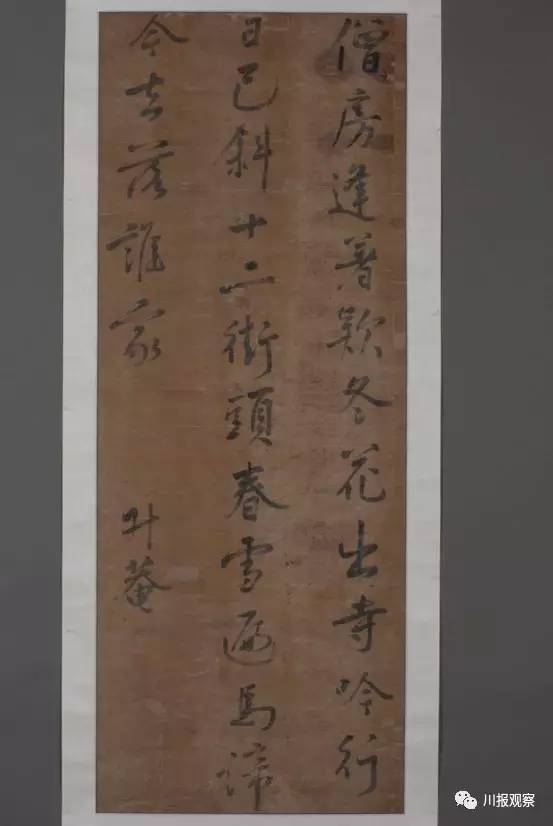 僧房逢著款冬花出寺吟行
日已斜十二街頭春雪遍馬蹄
今去落誰家
叶菴
川报观察